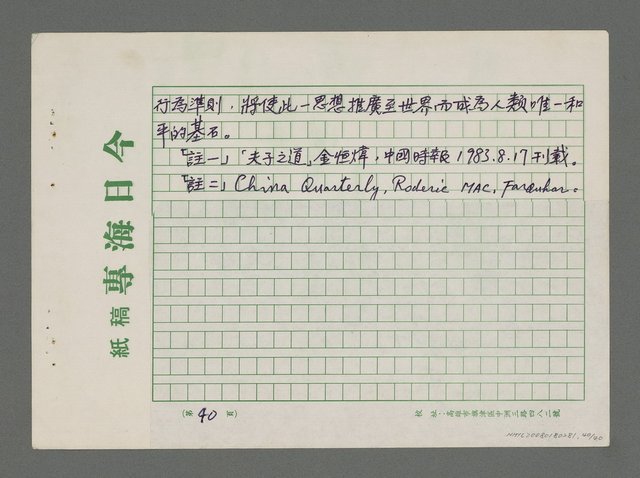 行為準則，將使此一思想推廣至世界而成為人類唯一和
平的基石。
「註一」「夫子之道」金恒煒，中國時報1983.8.17刊載。
「註二」China Quarterly, Roderic MAC. Farquhar。
今日海專
稿紙
(第 40 頁)
校址：高雄市旗津區中洲三路四八二號
NMTL20080180281, 40/40